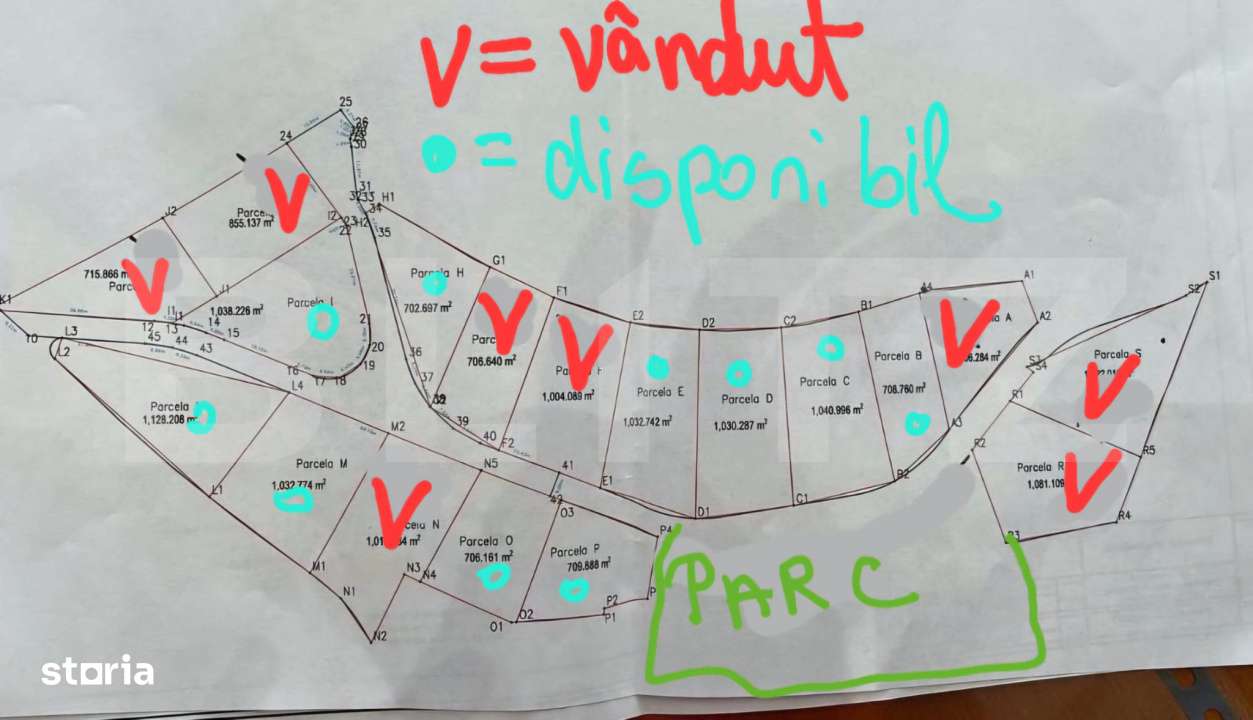 V = vândut
= disponibil
25
24
30
31
32
33
H1
34
J2
I2
23
H2
22
35
Parce
855.137 m²
G1
Parcela H
702.697 m²
715.866 m
Parc
J1
1,038.226 m²
Parcela I
K1
I1
12
13
14
15
L3
L2
45
44
43
16
17
18
19
20
21
L4
F1
E2
D2
C2
B1
A1
A2
S1
S2
Parc
706.640 m²
1,004.089 m²
Parcela E
1,032.742 m²
Parcela D
1,030.287 m²
Parcela C
1,040.996 m²
Parcela B
708.760 m²
A
6.284 m²
S3
S4
Parcela S
R1
R2
R5
Parcela R
1,081.109
R4
36
37
39
40
F2
41
A3
B2
C1
D1
E1
1,128.208
L1
M2
Parcela M
1,032.774 m²
M1
N5
N1
N2
N3
N4
Parcela O
706.161 m²
O3
Parcela P
709.888 m²
O1
O2
P1
P2
P4
PARC
storia